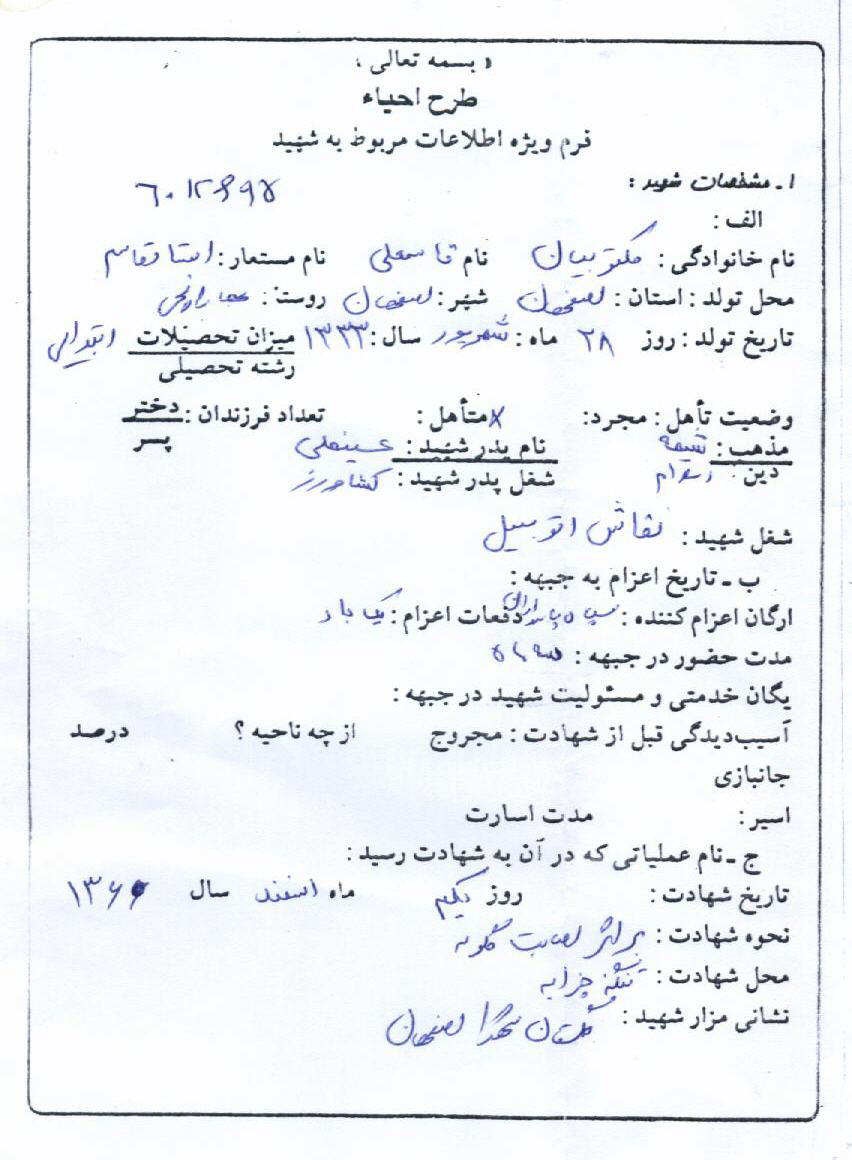 « بسمه تعالی »
طرح احیاء
فرم ویژه اطلاعات مربوط به شهید
۱ـ مشخصات شهید :
الف :
نام خانوادگی : مکتبیان نام قاسمعلی نام مستعار : استا قاسم
محل تولد : استان : اصفهان شهر : اصفهان روستا :
تاریخ تولد : روز ۲۸ ماه : شهریور سال : ۱۳۳۳ میزان تحصیلات ابتدایی
رشته تحصیلی
وضعیت تأهل : مجرد: متأهل : تعداد فرزندان : دختر
پسر
مذهب : شیعه نام پدر شهید : حسینعلی
دین : اسلام شغل پدر شهید : کشاورز
شغل شهید : نقاش اتومبیل
ب ـ تاریخ اعزام به جبهه :
ارگان اعزام کننده : سپاه پاسداران دفعات اعزام : یک بار
مدت حضور در جبهه : سه ماه
یگان خدمتی و مسئولیت شهید در جبهه :
آسیب‌دیدگی قبل از شهادت : مجروح از چه ناحیه ؟ درصد
جانبازی
اسیر : مدت اسارت
ج ـ نام عملیاتی که در آن به شهادت رسید :
تاریخ شهادت : روز یکم ماه اسفند سال
نحوه شهادت : بر اثر اصابت گلوله
محل شهادت : تنگه چزابه
نشانی مزار شهید : گلستان شهدا اصفهان